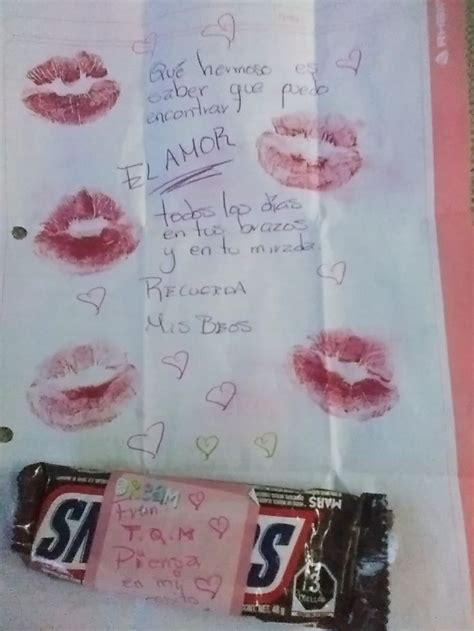 Qué hermoso es
saber que puedo
encontrar
EL AMOR
todos los días
en tus brazos
y en tu mirada
RECUERDA
MIS BEOS
DREAM
T.Q.M
Piensa
en mi
MARS
CONT. NET. 48 g